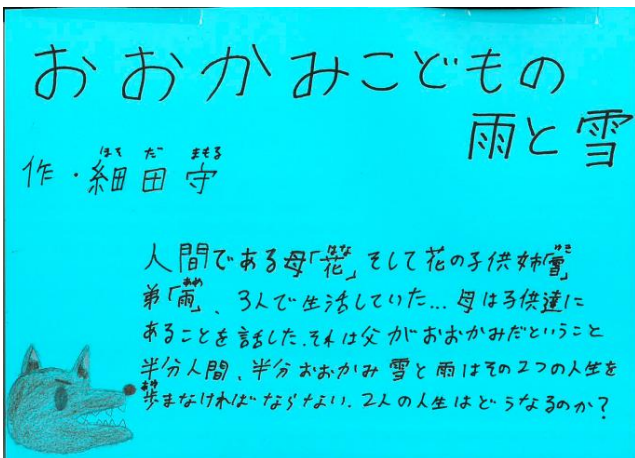 おおかみこどもの
雨と雪
ほそ だ まもる
作・細田守
はな ゆき
人間である母「花」そして花の子供姉「雪」
あめ
弟「雨」、3人で生活していた...母は子供達に
あることを話した.それは父がおおかみだということ
半分人間、半分おおかみ 雪と雨はその2つの人生を
あゆ
歩まなければならない.2人の人生はどうなるのか?